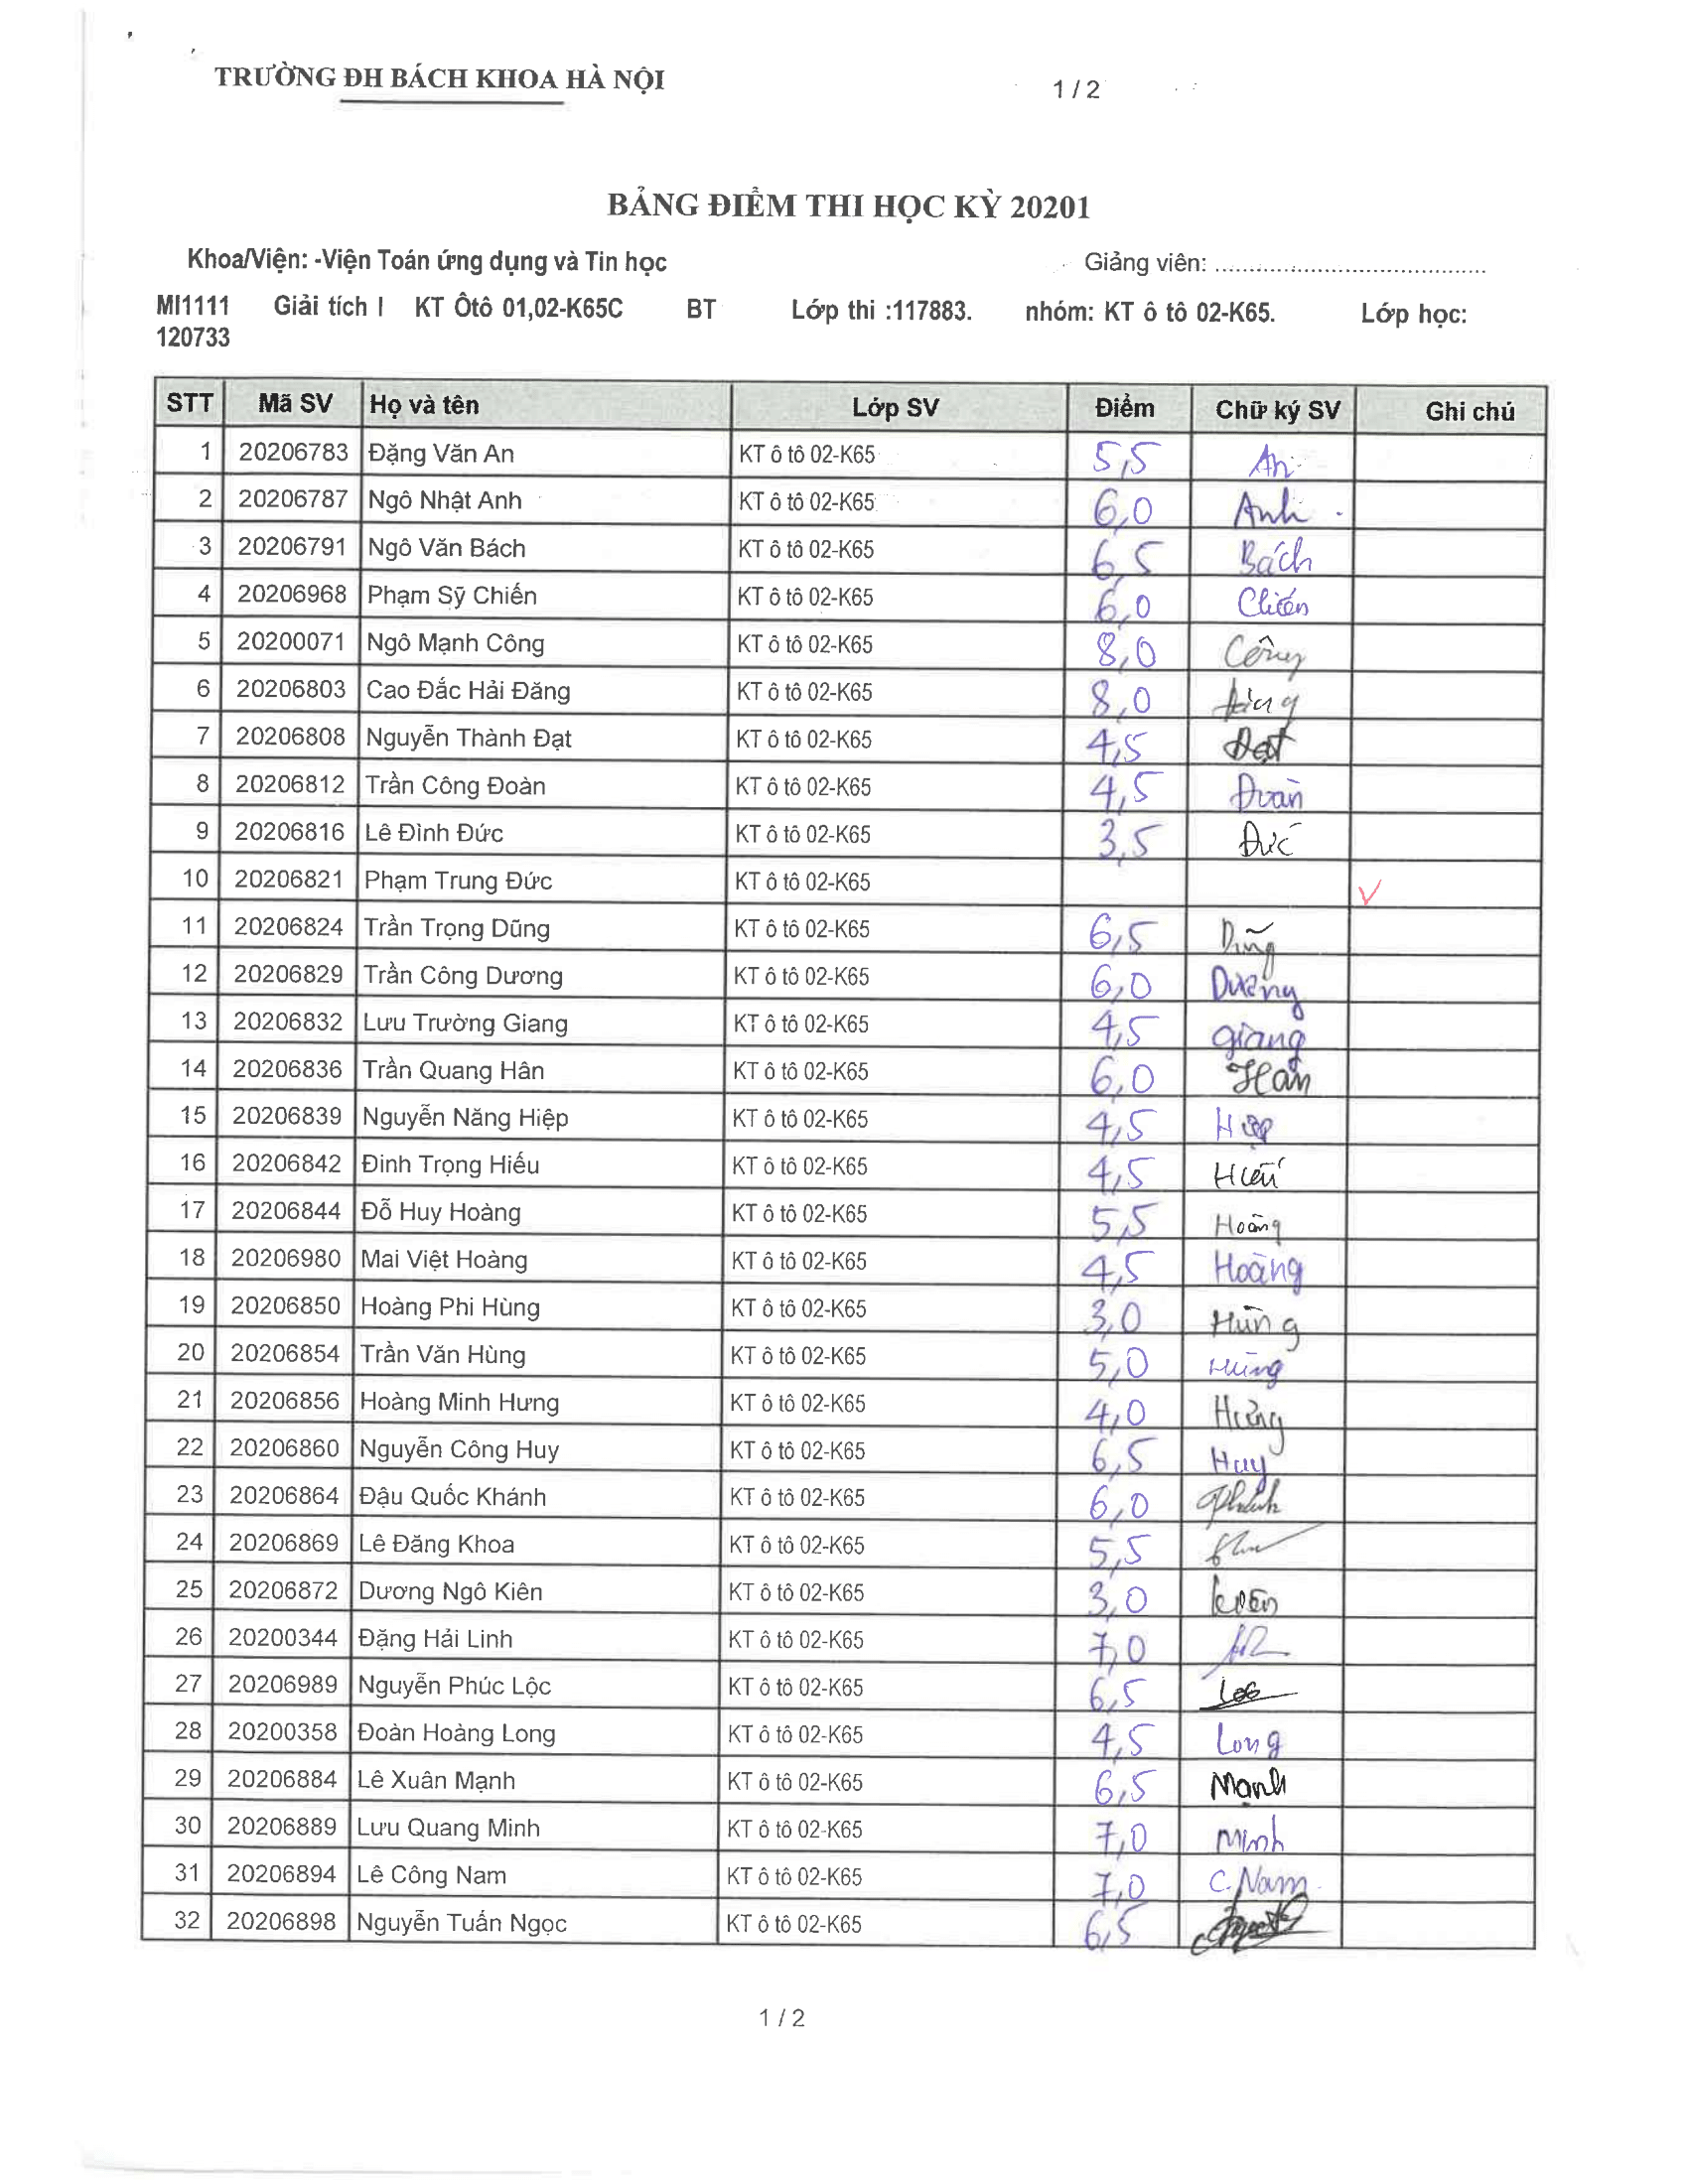 TRƯỜNG ĐH BÁCH KHOA HÀ NỘI 1 / 2
BẢNG ĐIỂM THI HỌC KỲ 20201
Khoa/Viện: -Viện Toán ứng dụng và Tin học Giảng viên: ......................................
MI1111 Giải tích I KT Ôtô 01,02-K65C BT Lớp thi :117883. nhóm: KT ô tô 02-K65. Lớp học:
120733
STT Mã SV Họ và tên Lớp SV Điểm Chữ ký SV Ghi chú
1 20206783 Đặng Văn An KT ô tô 02-K65 5,5 An
2 20206787 Ngô Nhật Anh KT ô tô 02-K65 6,0 Anh
3 20206791 Ngô Văn Bách KT ô tô 02-K65 6,5 Bách
4 20206968 Phạm Sỹ Chiến KT ô tô 02-K65 6,0 Chiến
5 20200071 Ngô Mạnh Công KT ô tô 02-K65 8,0 Công
6 20206803 Cao Đắc Hải Đăng KT ô tô 02-K65 8,0 Đăng
7 20206808 Nguyễn Thành Đạt KT ô tô 02-K65 4,5 Đạt
8 20206812 Trần Công Đoàn KT ô tô 02-K65 4,5 Đoàn
9 20206816 Lê Đình Đức KT ô tô 02-K65 3,5 Đức
10 20206821 Phạm Trung Đức KT ô tô 02-K65 ✓
11 20206824 Trần Trọng Dũng KT ô tô 02-K65 6,5 Dũng
12 20206829 Trần Công Dương KT ô tô 02-K65 6,0 Dương
13 20206832 Lưu Trường Giang KT ô tô 02-K65 4,5 giang
14 20206836 Trần Quang Hân KT ô tô 02-K65 6,0 Hân
15 20206839 Nguyễn Năng Hiệp KT ô tô 02-K65 4,5 Hiệp
16 20206842 Đinh Trọng Hiếu KT ô tô 02-K65 4,5 Hiếu
17 20206844 Đỗ Huy Hoàng KT ô tô 02-K65 5,5 Hoàng
18 20206980 Mai Việt Hoàng KT ô tô 02-K65 4,5 Hoàng
19 20206850 Hoàng Phi Hùng KT ô tô 02-K65 3,0 Hùng
20 20206854 Trần Văn Hùng KT ô tô 02-K65 5,0 Hùng
21 20206856 Hoàng Minh Hưng KT ô tô 02-K65 4,0 Hưng
22 20206860 Nguyễn Công Huy KT ô tô 02-K65 6,5 Huy
23 20206864 Đậu Quốc Khánh KT ô tô 02-K65 6,0
24 20206869 Lê Đăng Khoa KT ô tô 02-K65 5,5
25 20206872 Dương Ngô Kiên KT ô tô 02-K65 3,0 Kiên
26 20200344 Đặng Hải Linh KT ô tô 02-K65 7,0
27 20206989 Nguyễn Phúc Lộc KT ô tô 02-K65 6,5 Lộc
28 20200358 Đoàn Hoàng Long KT ô tô 02-K65 4,5 Long
29 20206884 Lê Xuân Mạnh KT ô tô 02-K65 6,5 Mạnh
30 20206889 Lưu Quang Minh KT ô tô 02-K65 7,0 Minh
31 20206894 Lê Công Nam KT ô tô 02-K65 7,0 C.Nam
32 20206898 Nguyễn Tuấn Ngọc KT ô tô 02-K65 6,5
1 / 2